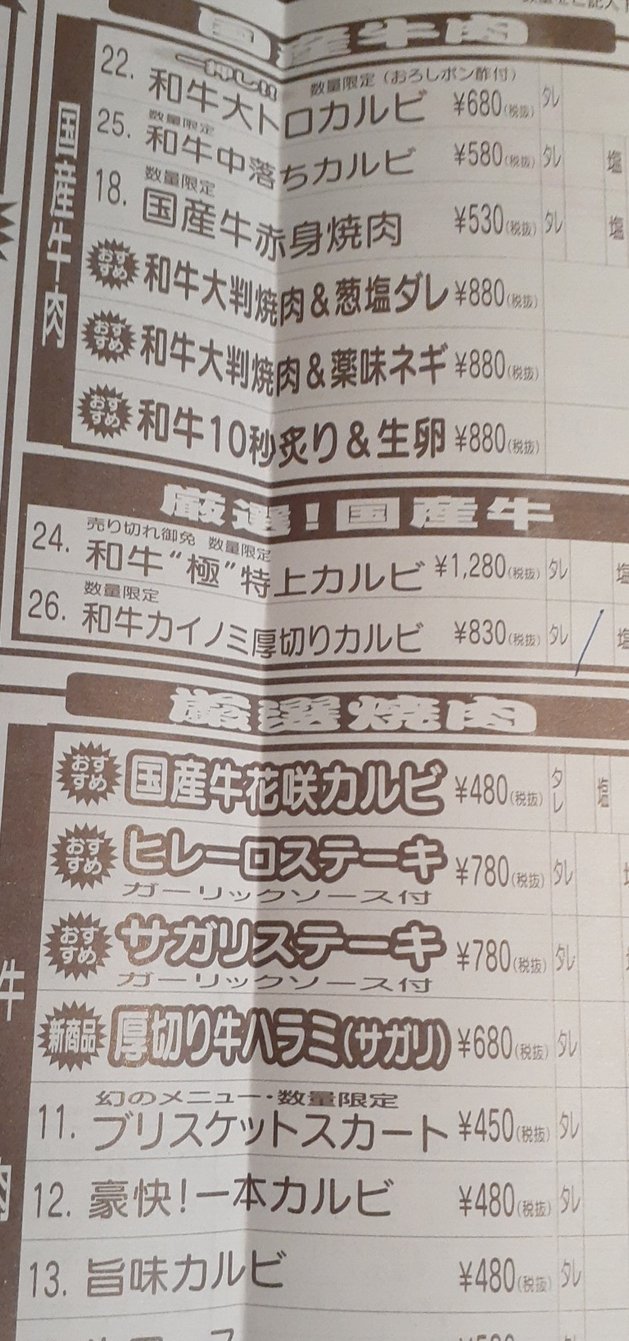 国産牛肉
国産牛肉
一押し!!
数量限定(おろしポン酢付)
22. 和牛大トロカルビ ¥680(税抜) タレ
数量限定
25. 和牛中落ちカルビ ¥580(税抜) タレ 塩
数量限定
18. 国産牛赤身焼肉 ¥530(税抜) タレ 塩
おすすめ 和牛大判焼肉&葱塩ダレ ¥880(税抜)
おすすめ 和牛大判焼肉&薬味ネギ ¥880(税抜)
おすすめ 和牛10秒炙り&生卵 ¥880(税抜)
厳選!国産牛
売り切れ御免 数量限定
24. 和牛"極"特上カルビ ¥1,280(税抜) タレ 塩
数量限定
26. 和牛カイノミ厚切りカルビ ¥830(税抜) タレ 塩
厳選焼肉
おすすめ 国産牛花咲カルビ ¥480(税抜) タレ 塩
おすすめ ヒレーロステーキ ¥780(税抜) タレ
ガーリックソース付
おすすめ サガリステーキ ¥780(税抜) タレ
ガーリックソース付
新商品 厚切り牛ハラミ(サガリ) ¥680(税抜) タレ
幻のメニュー・数量限定
11. ブリスケットスカート ¥450(税抜) タレ
12. 豪快!一本カルビ ¥480(税抜) タレ
13. 旨味カルビ ¥480(税抜) タレ
牛
肉